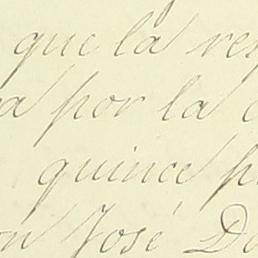 que la res
a por la
quince p
on José D